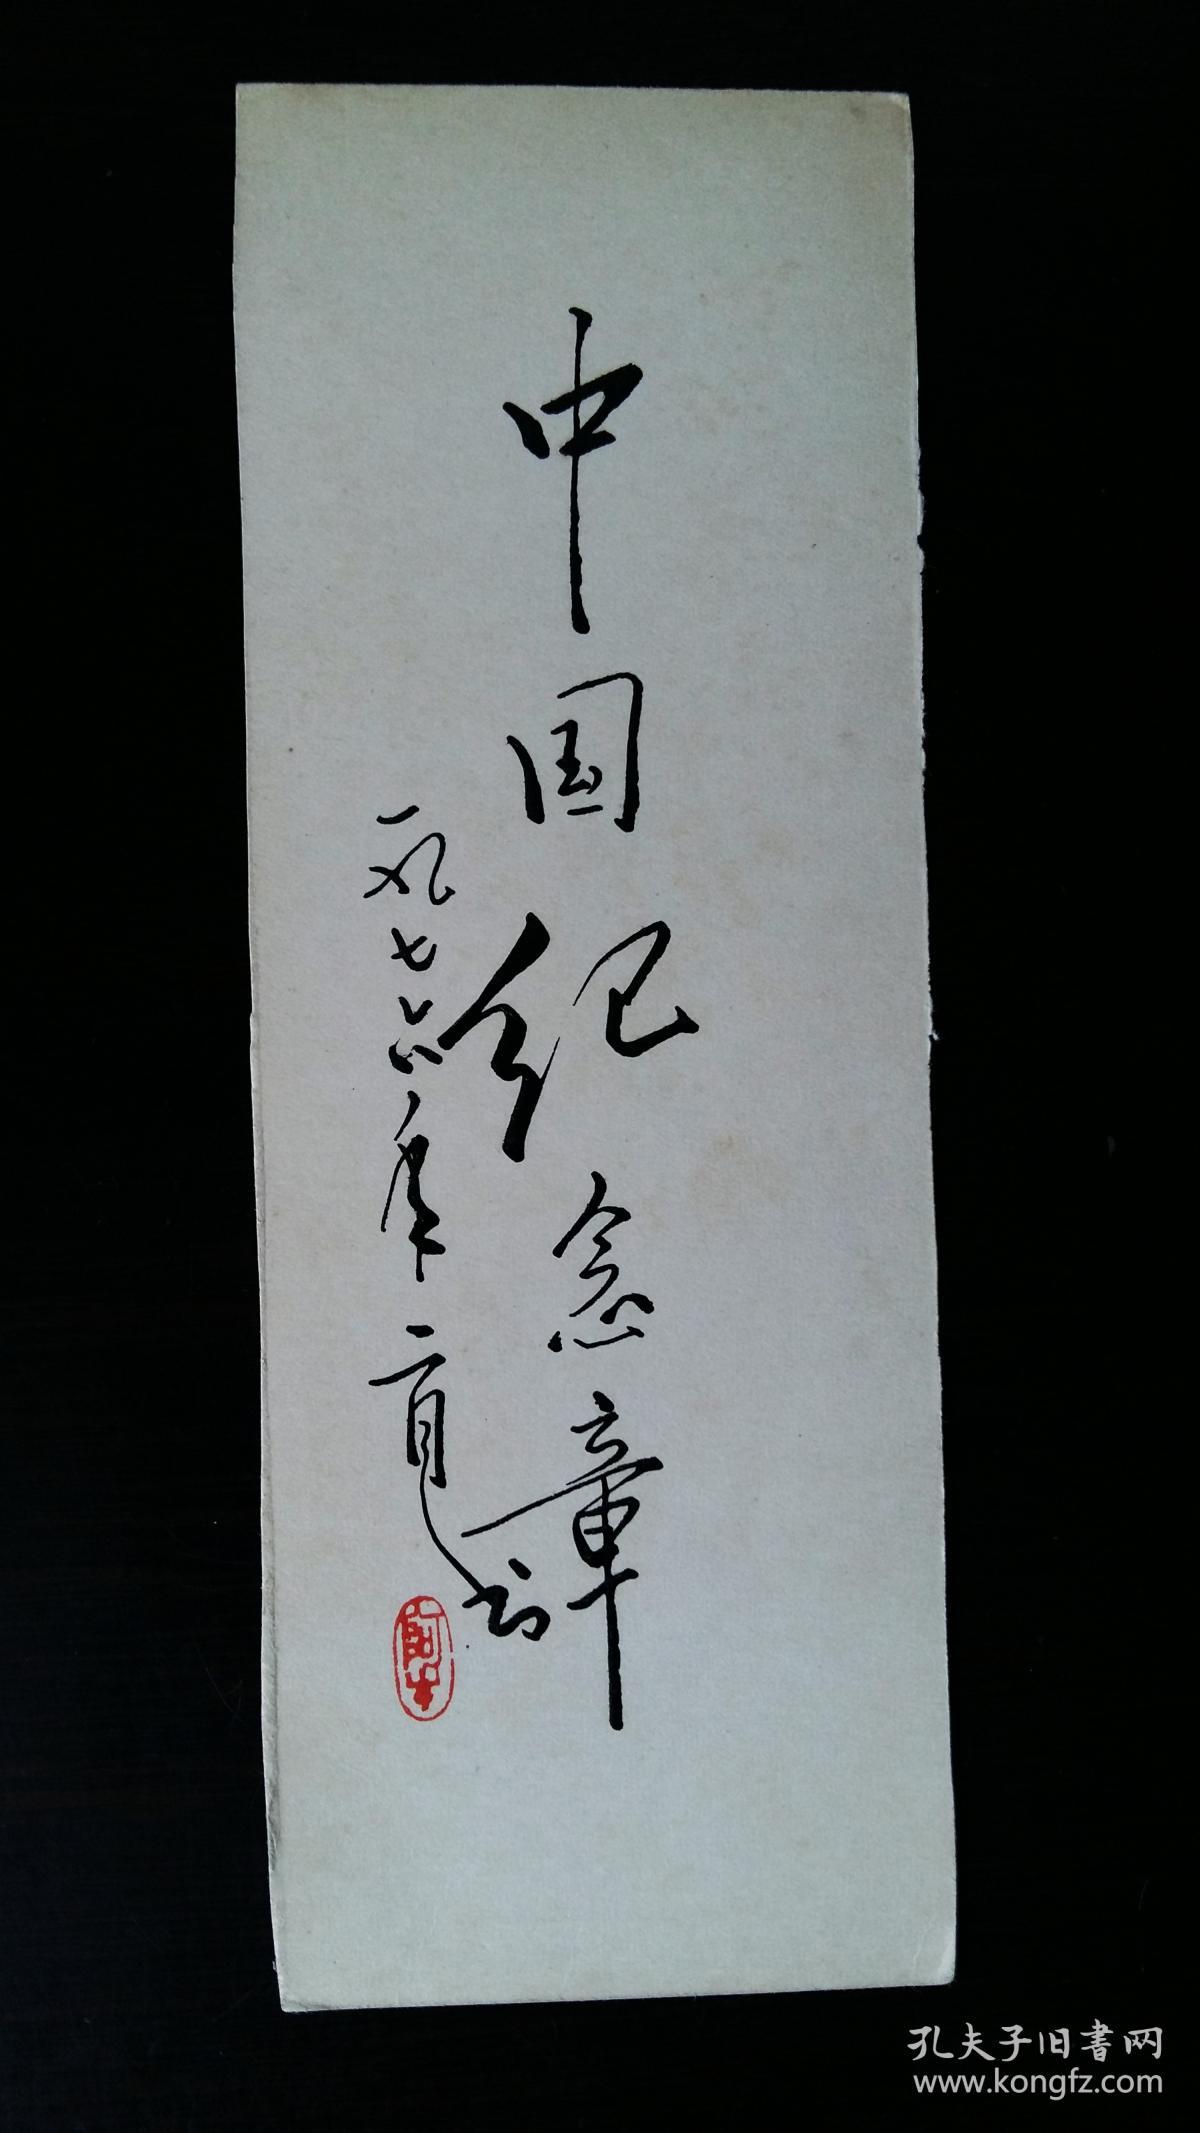 中国纪念章
一九七六年二月
孔夫子旧书网
www.kongfz.com